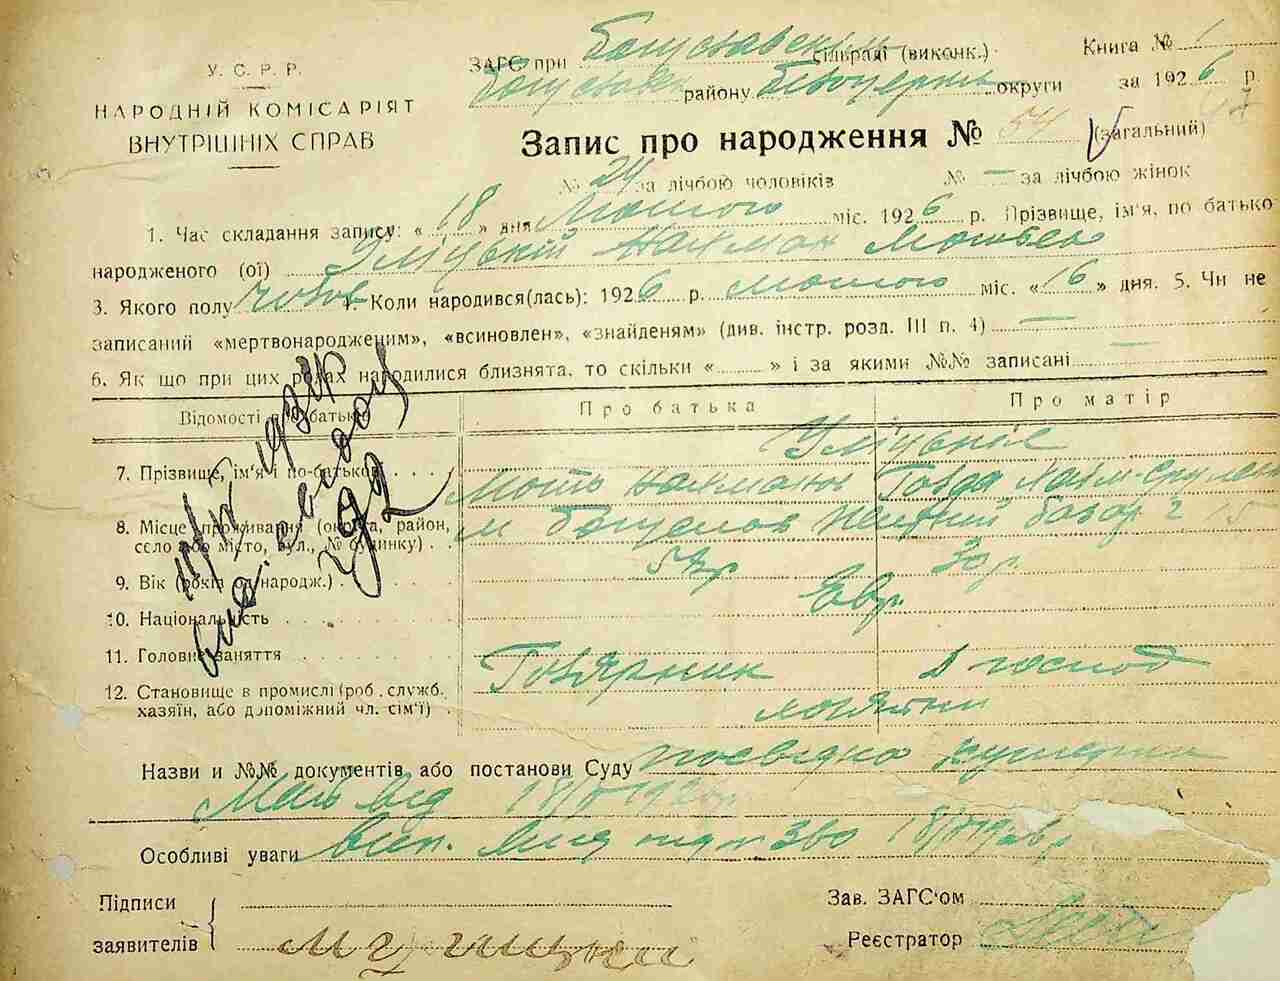 У. С. Р. Р.
НАРОДНІЙ КОМІСАРІЯТ
ВНУТРІШНІХ СПРАВ
ЗАГС при Богуславскій сільраді (виконк.)
Богуславск району Білоцерк округи
Книга № 1
за 1926 р.
Запис про народження № 54 (загальний)
№ 24 за лічбою чоловіків № — за лічбою жінок
1. Час складання запису: « 18 » дня Лютого міс. 1926 р. Прізвище, ім'я, по батько
народженого (ої) Уліцький Нахман Мошьев
3. Якого полу Чолов 4. Коли народився(лась): 1926 р. лютого міс. « 16 » дня. 5. Чи не
записаний «мертвонародженим», «всиновлен», «знайденям» (див. інстр. розд. III п. 4) —
6. Як що при цих родах народилися близнята, то скільки « » і за якими №№ записані —
Відомості про батьків
Про батька
Про матір
Уліцькіє
7. Прізвище, ім'я і по-батькові
Мошь Нахманов
Говда Хаїм-Срулев
8. Місце проживання (округа, район,
село або місто, вул., № будинку)
м Богуслав
базар
9. Вік (років од народж.)
30 р.
10. Національність
Євр.
11. Головне заняття
12. Становище в промислі (роб., служб.
хазяїн, або допоміжний чл. сім'ї)
в господ
хозяїни
Назви и №№ документів або постанови Суду посвідка
від 18/II 1926р
Особливі уваги
18/II 1926р
Підписи
заявителів
Зав. ЗАГС'ом
Реєстратор